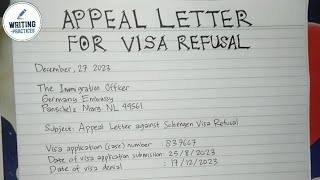 WRITING
PRACTICES
APPEAL LETTER
FOR VISA REFUSAL
December, 27 2023
The Immigration Officer
Germany Embassy
NL 44561
Subject: Appeal Letter against Schengen Visa Refusal
Visa application (case) number : 837667
Date of visa application submission : 25/8/2023
Date of visa denial : 17/12/2023